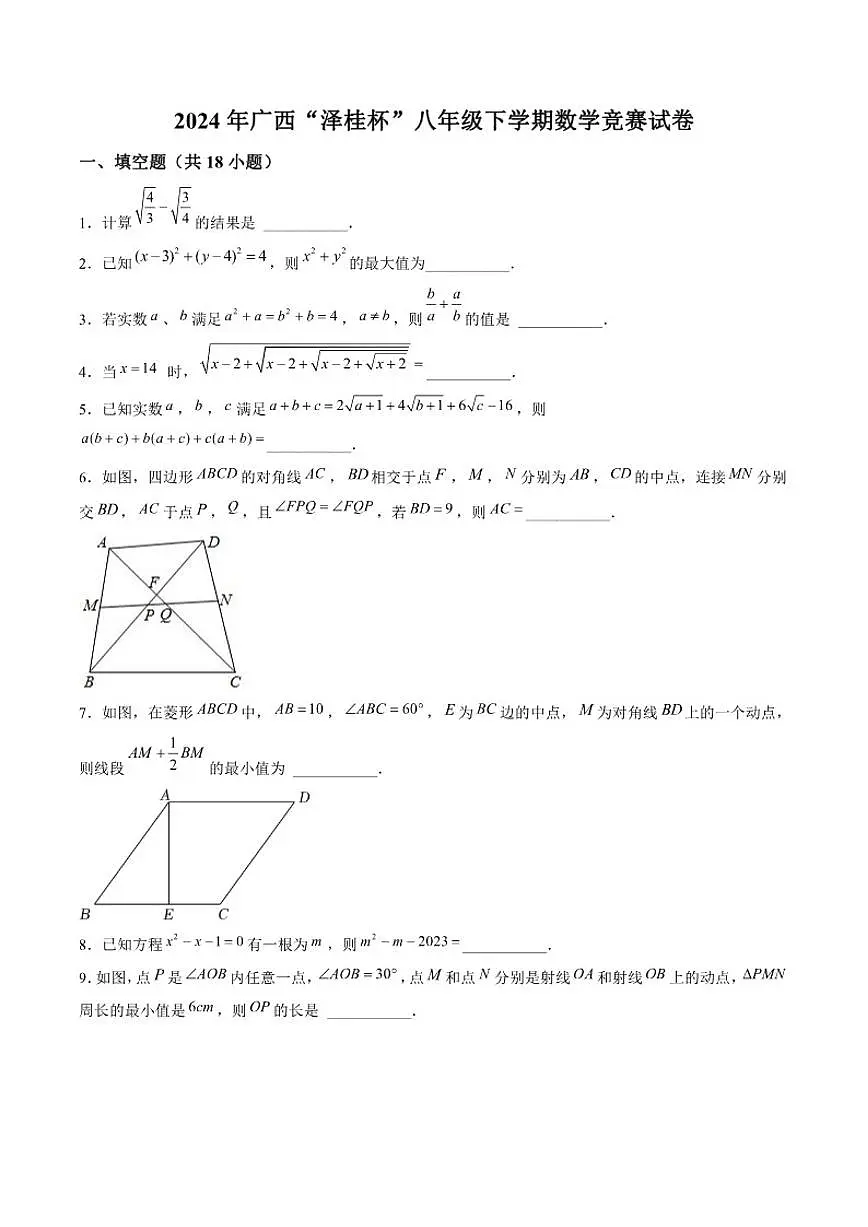 2024 年广西“泽桂杯”八年级下学期数学竞赛试卷
一、填空题（共 18 小题）
1．计算 $\sqrt{\frac{4}{3}}-\sqrt{\frac{3}{4}}$ 的结果是 ___________．
2．已知 $(x-3)^2+(y-4)^2=4$，则 $x^2+y^2$ 的最大值为___________．
3．若实数 a、b 满足 $a^2+a=b^2+b=4$，$a\neq b$，则 $\frac{b}{a}+\frac{a}{b}$ 的值是 ___________．
4．当 $x=14$ 时，$\sqrt{x-2+\sqrt{x-2+\sqrt{x-2+\sqrt{x+2}}}}=$ ___________．
5．已知实数 a，b，c 满足 $a+b+c=2\sqrt{a+1}+4\sqrt{b+1}+6\sqrt{c}-16$，则
$a(b+c)+b(a+c)+c(a+b)=$ ___________．
6．如图，四边形 ABCD 的对角线 AC，BD 相交于点 F，M，N 分别为 AB，CD 的中点，连接 MN 分别
交 BD，AC 于点 P，Q，且 ∠FPQ=∠FQP，若 BD=9，则 AC= ___________．
A
D
F
M
N
P
Q
B
C
7．如图，在菱形 ABCD 中，AB=10，∠ABC=60°，E 为 BC 边的中点，M 为对角线 BD 上的一个动点，
则线段 $AM+\frac{1}{2}BM$ 的最小值为 ___________．
A
D
B
E
C
8．已知方程 $x^2-x-1=0$ 有一根为 m，则 $m^2-m-2023=$ ___________．
9．如图，点 P 是 ∠AOB 内任意一点，∠AOB=30°，点 M 和点 N 分别是射线 OA 和射线 OB 上的动点，ΔPMN
周长的最小值是 6cm，则 OP 的长是 ___________．